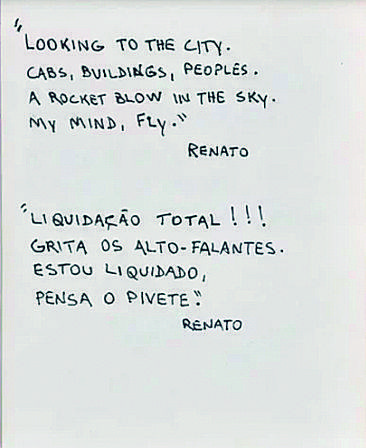 "LOOKING TO THE CITY.
CABS, BUILDINGS, PEOPLES.
A ROCKET BLOW IN THE SKY.
MY MIND, FLY."
RENATO
"LIQUIDAÇÃO TOTAL!!!
GRITA OS ALTO-FALANTES.
ESTOU LIQUIDADO,
PENSA O PIVETE."
RENATO